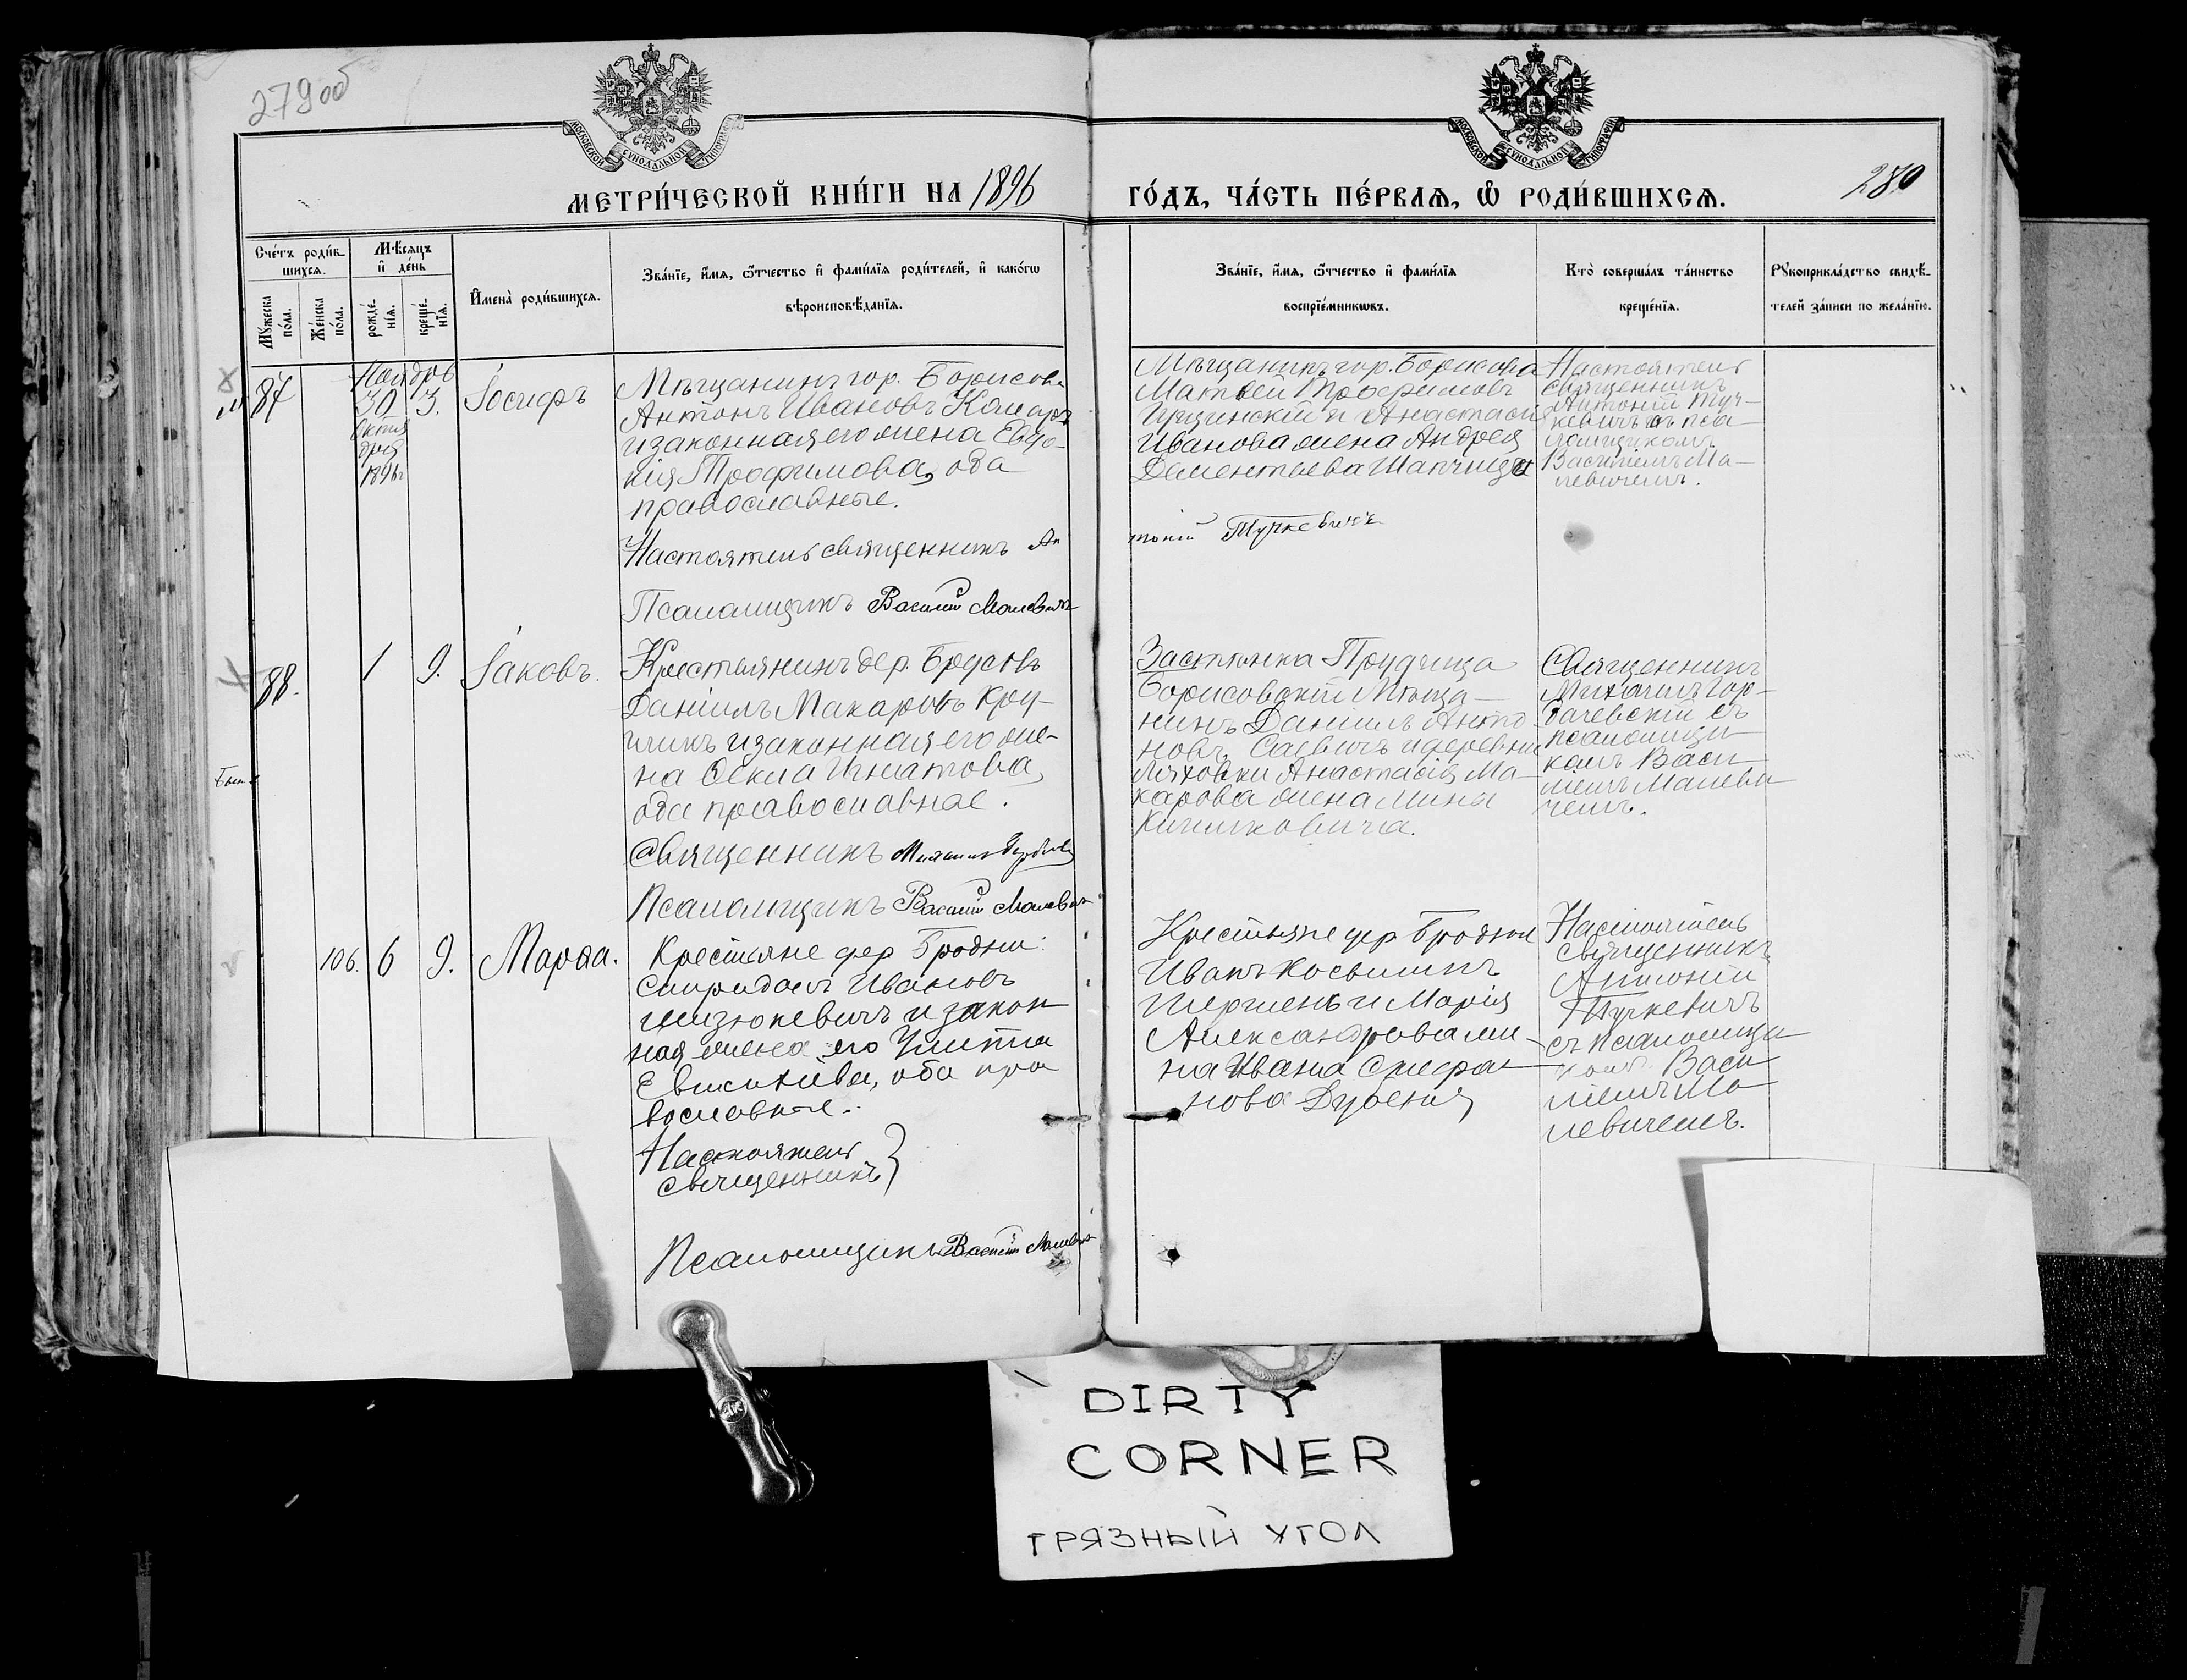 279 об
МОСКОВСКОЙ СУНОДАЛЬНОЙ ТИПОГРАФІИ
МОСКОВСКОЙ СУНОДАЛЬНОЙ ТИПОГРАФІИ
МЕТРИ́ЧЕСКОЙ КНИ́ГИ НА 1896
ГО́ДЪ, ЧА́СТЬ ПЕ́РВАѦ, Ѽ РОДИ́ВШИХСѦ.
280
Сче́тъ роди́в-
шихсѧ.
Мѣ́сѧцъ
и҆ де́нь
Мꙋ́жеска
по́ла.
Же́нска
по́ла.
рожде́-
нїѧ.
креще́-
нїѧ.
И҆мена̀ роди́вшихсѧ.
Зва́нїе, и҆́мѧ, ѻ҆́тчество и҆ фами́лїѧ роди́телей, и҆ како́гѡ
вѣроисповѣ́данїѧ.
Зва́нїе, и҆́мѧ, ѻ҆́тчество и҆ фами́лїѧ
воспрїе́мникѡвъ.
Кто̀ соверша́лъ та́инство
креще́нїѧ.
Рꙋкоприкла́дство свидѣ́-
телей за́писи по жела́нїю.
87
Ноябрь
30 3.
Октя
бря
1896г
Іосифъ
Мѣщанинъ гор. Борисова
Антонъ Ивановъ Комаръ
и законная его жена Евдо-
кія Трофимова, оба
православные.
Настоятель священникъ Ан
Псаломщикъ Василій Малевичъ
Мѣщанинъ гор. Борисова
Матѳей Трофимовъ
и Анастасія
Иванова жена Андрея
Дементьева
тоній Тучкевичъ
Настоятель
священникъ
Антоній Туч-
кевичъ съ пса-
ломщикомъ
Василіемъ Ма-
левичемъ.
88.
1 9.
Іаковъ.
Крестьянинъ дер. Бродовъ
Даніилъ Макаровъ Кру-
и законная его же-
на Ѳекла Игнатова,
оба православные.
Священникъ Михаилъ
Псаломщикъ Василій Малевичъ
Застѣнка Прудища
Борисовскій Мѣща-
нинъ Даніилъ Анто
новъ Савичъ и деревни
Ляховки Анастасія Ма-
карова жена Мины
Священникъ
Михаилъ Гор-
бачевскій съ
псаломщи-
комъ Васи
ліемъ Малеви
чемъ.
106. 6 9.
Марѳа.
Крестьяне дер Бродни
Спиридонъ Ивановъ
и закон
ная жена его Улита
оба пра
вославные.
Настоятель
священникъ }
Псаломщикъ Василій Малевичъ
Крестьяне дер Бродни
Иванъ
и Марія
Александрова же-
на Ивана Стефа-
нова
Настоятель
священникъ
Антоній
Тучкевичъ
съ псаломщи
комъ Васи
ліемъ Ма
левичемъ.
DIRTY
CORNER
ГРЯЗНЫЙ УГОЛ